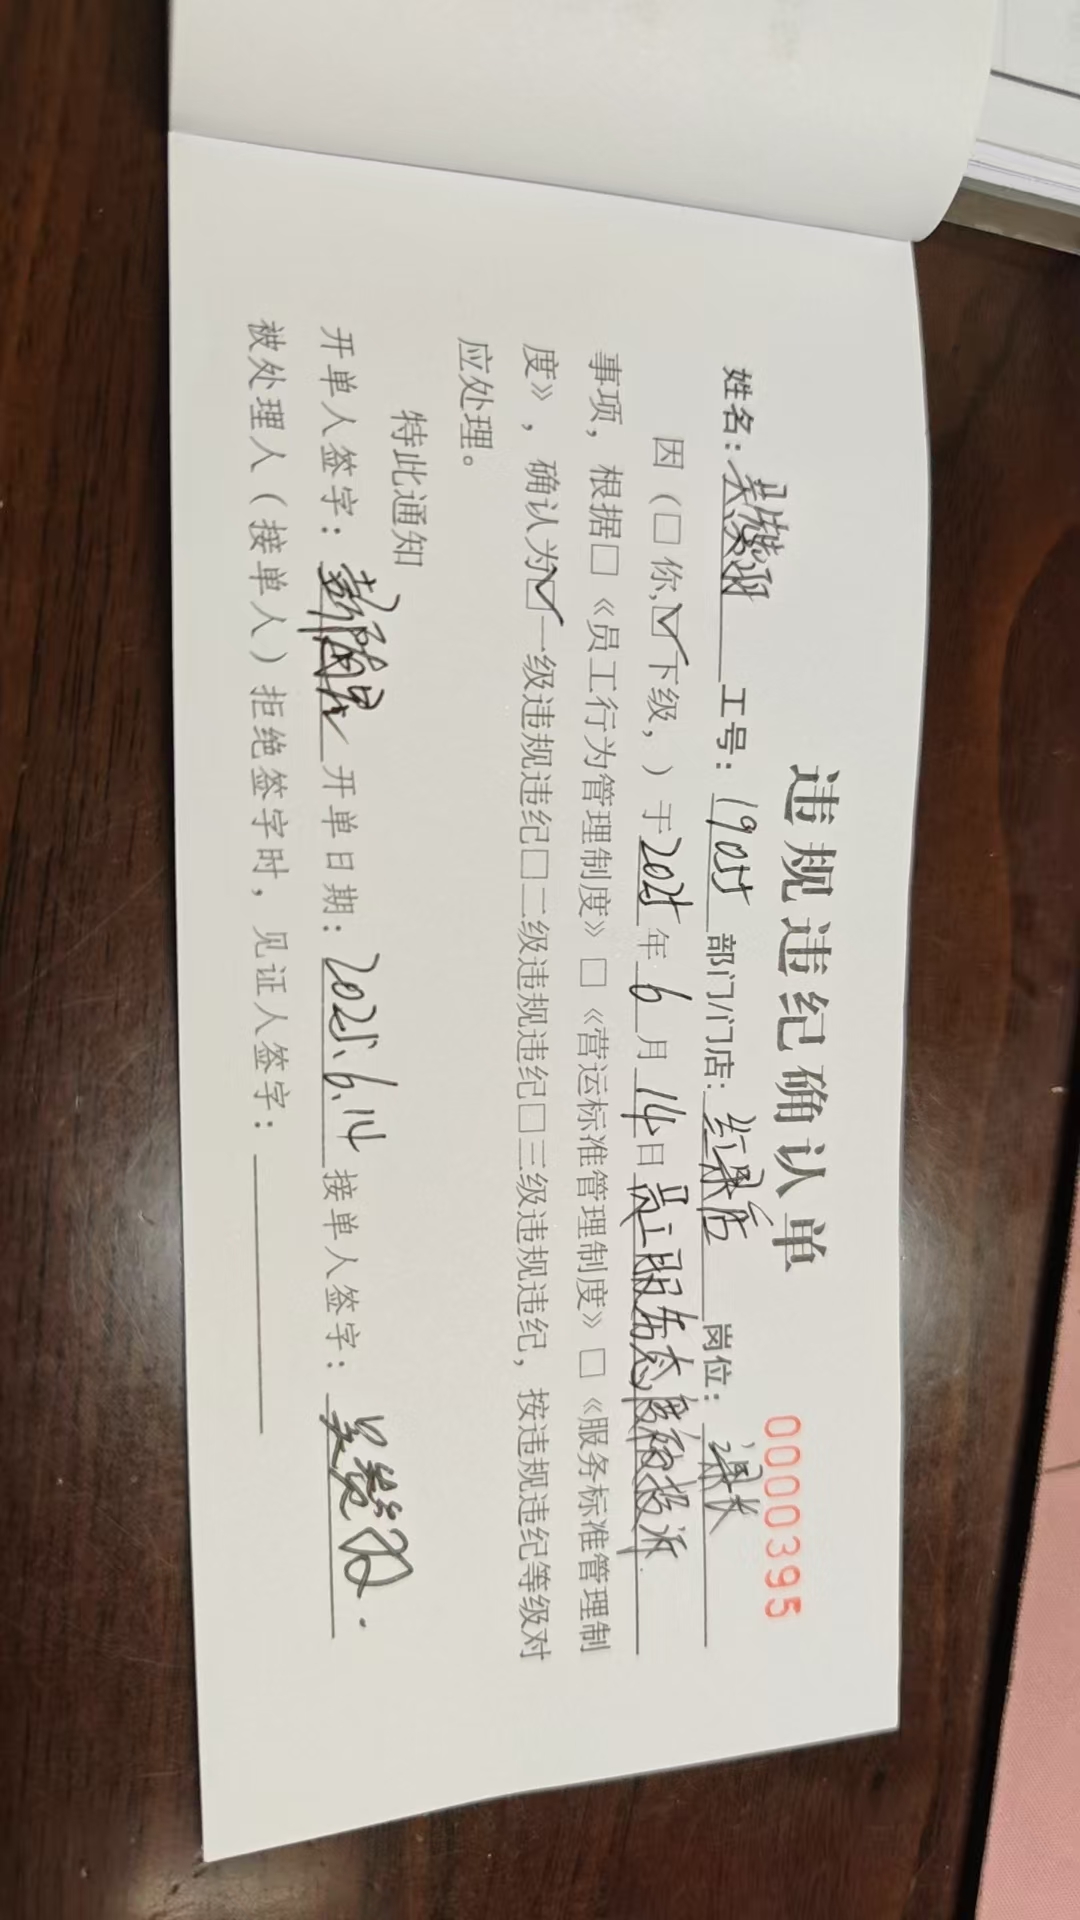 违规违纪确认单
0000395
姓名：吴 工号：19055 部门/门店：红果店 岗位：课长
因（□你，☑下级，）于2025年6月14日员工服务态度被投诉
事项，根据□《员工行为管理制度》□《营运标准管理制度》□《服务标准管理制
度》，确认为☑一级违规违纪□二级违规违纪□三级违规违纪，按违规违纪等级对
应处理。
特此通知
开单人签字： 开单日期：2025.6.14 接单人签字：吴
被处理人（接单人）拒绝签字时，见证人签字：